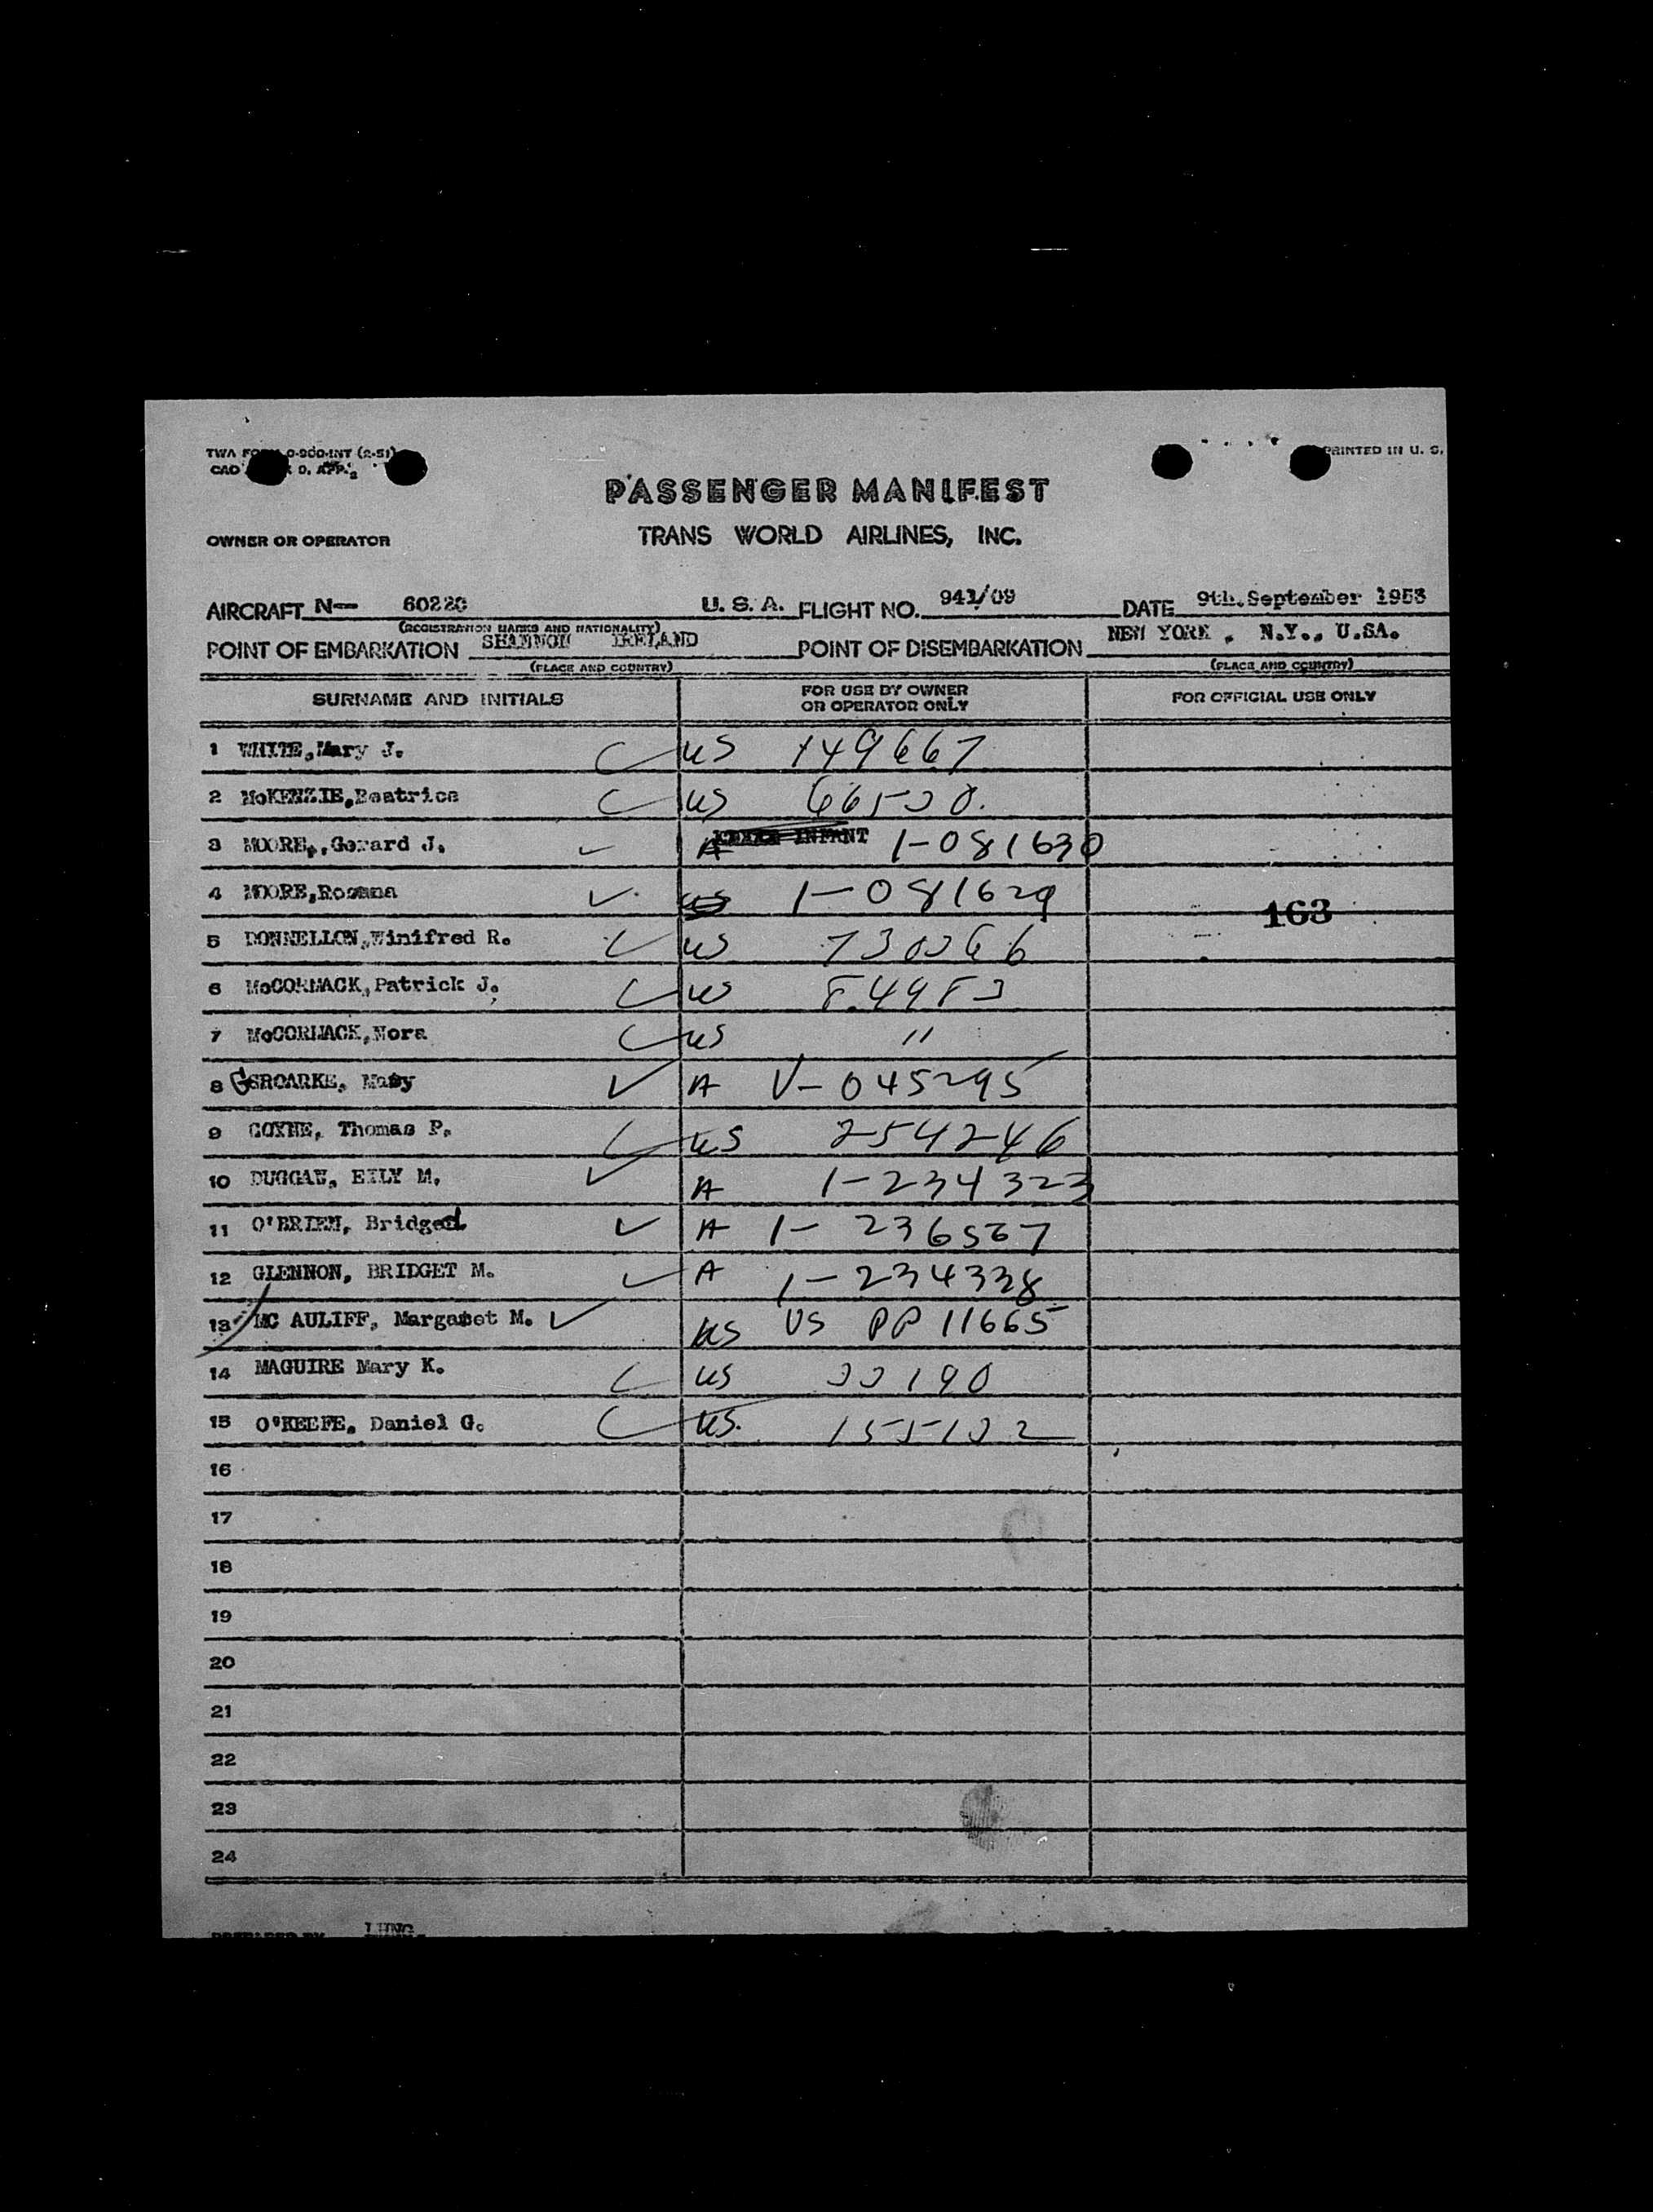 TWA FORM 0-900-INT (2-51) PRINTED IN U. S.
CAO
PASSENGER MANIFEST
OWNER OR OPERATOR TRANS WORLD AIRLINES, INC.
AIRCRAFT N— 6022C U. S. A. FLIGHT NO. 941/09 DATE 9th.September 1953
(REGISTRATION MARKS AND NATIONALITY)
POINT OF EMBARKATION SHANNON IRELAND POINT OF DISEMBARKATION NEW YORK , N.Y., U.SA.
(PLACE AND COUNTRY) (PLACE AND COUNTRY)
SURNAME AND INITIALS FOR USE BY OWNER OR OPERATOR ONLY FOR OFFICIAL USE ONLY
1 WHITE,Mary J. US 149667
2 McKENZIE,Beatrice US
3 MOORE,,Gerard J. A INFANT 1-081630
4 MOORE,Rosanna 1-081629
163
5 DONNELLON,Winifred R. US
6 McCORMACK,Patrick J. US
7 McCORMACK,Nora US "
8 GROARKE, Mary A V-045295
9 COYNE, Thomas P. US 254246
10 DUGGAN, EILY M. A 1-234323
11 O'BRIEN, Bridged A 1-236567
12 GLENNON, BRIDGET M. A 1-234338
13 MC AULIFF, Margaret M. US US PP 11665
14 MAGUIRE Mary K. US
15 O'KEEFE, Daniel G. US.
16
17
18
19
20
21
22
23
24
PREPARED BY LUNG.